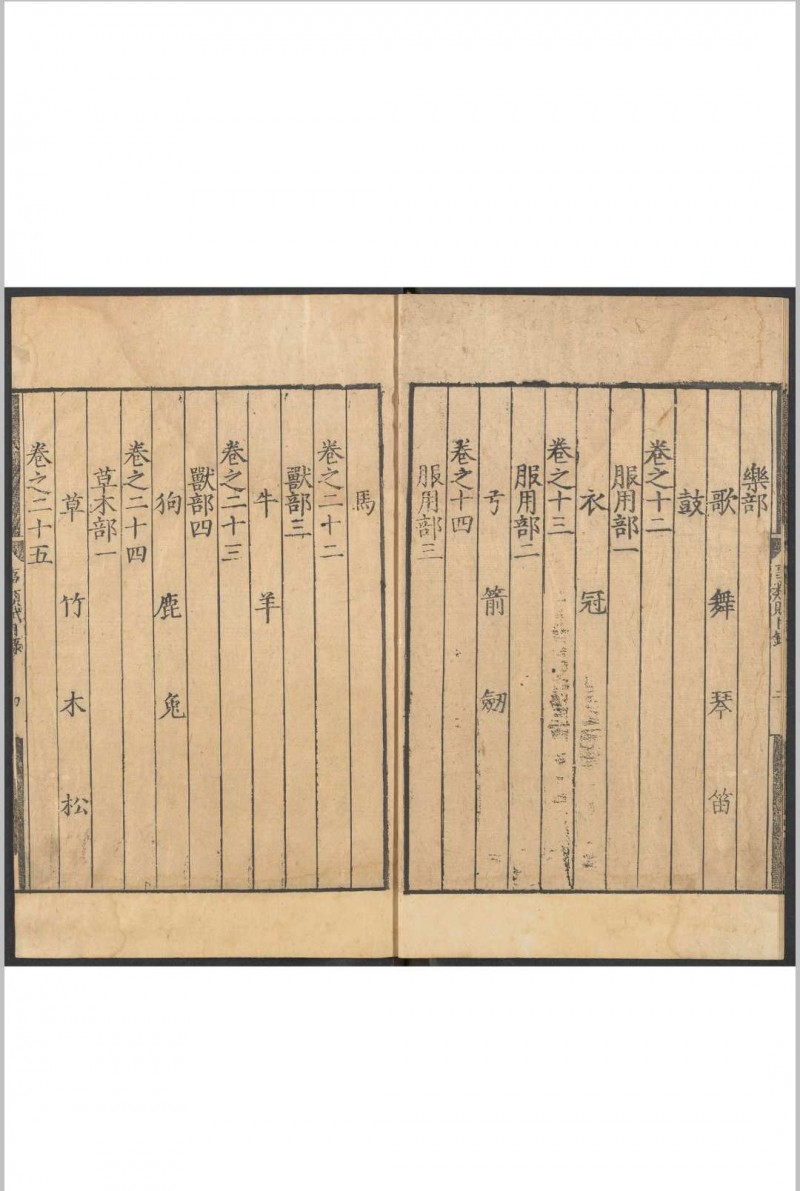 樂部
歌 舞 琴 笛
鼓
卷之十二
服用部一
衣 冠
卷之十三
服用部二
弓 箭 劒
卷之十四
服用部三
馬
卷之二十二
獸部三
牛 羊
卷之二十三
獸部四
狗 鹿 兔
卷之二十四
草木部一
草 竹 木 松
卷之二十五